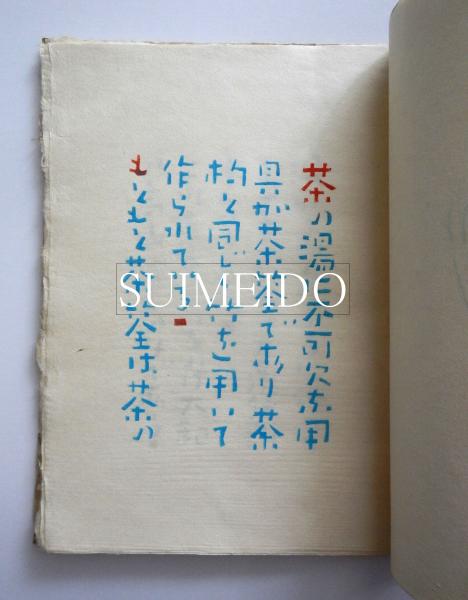 茶の湯に不可欠な用
具が茶筌であり茶
杓と同じ竹を用いて
作られている
もともと茶筌は茶の
SUIMEIDO